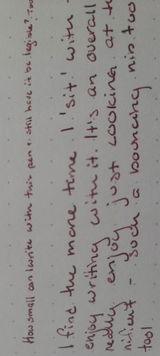 How small can I write with this pen & still have it be legible? Too
I find the more time I 'sit' with
enjoy writing with it. It's an overall
really enjoy just looking at th
nificent - such a bouncing nib too
too!